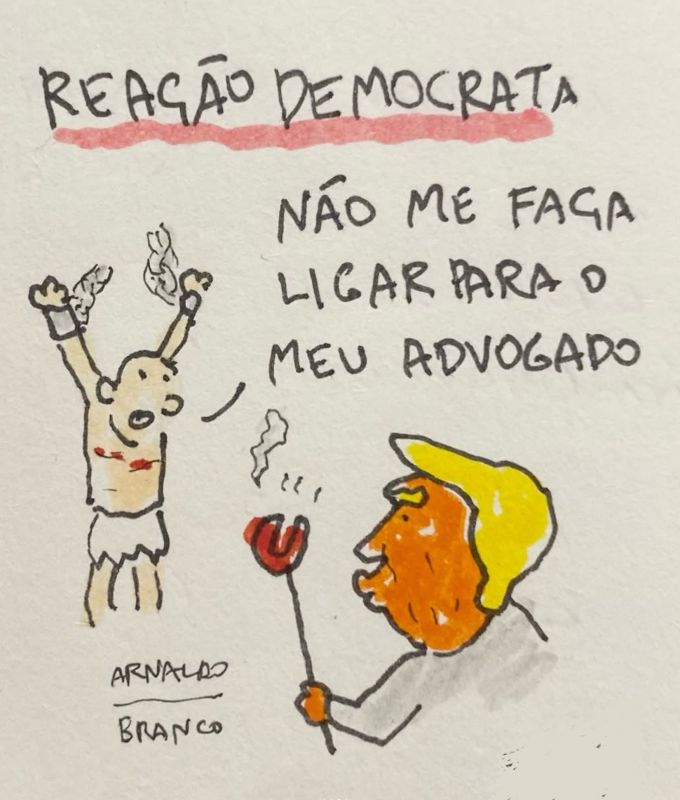 REAÇÃO DEMOCRATA
NÃO ME FAÇA
LIGAR PARA O
MEU ADVOGADO
ARNALDO
BRANCO